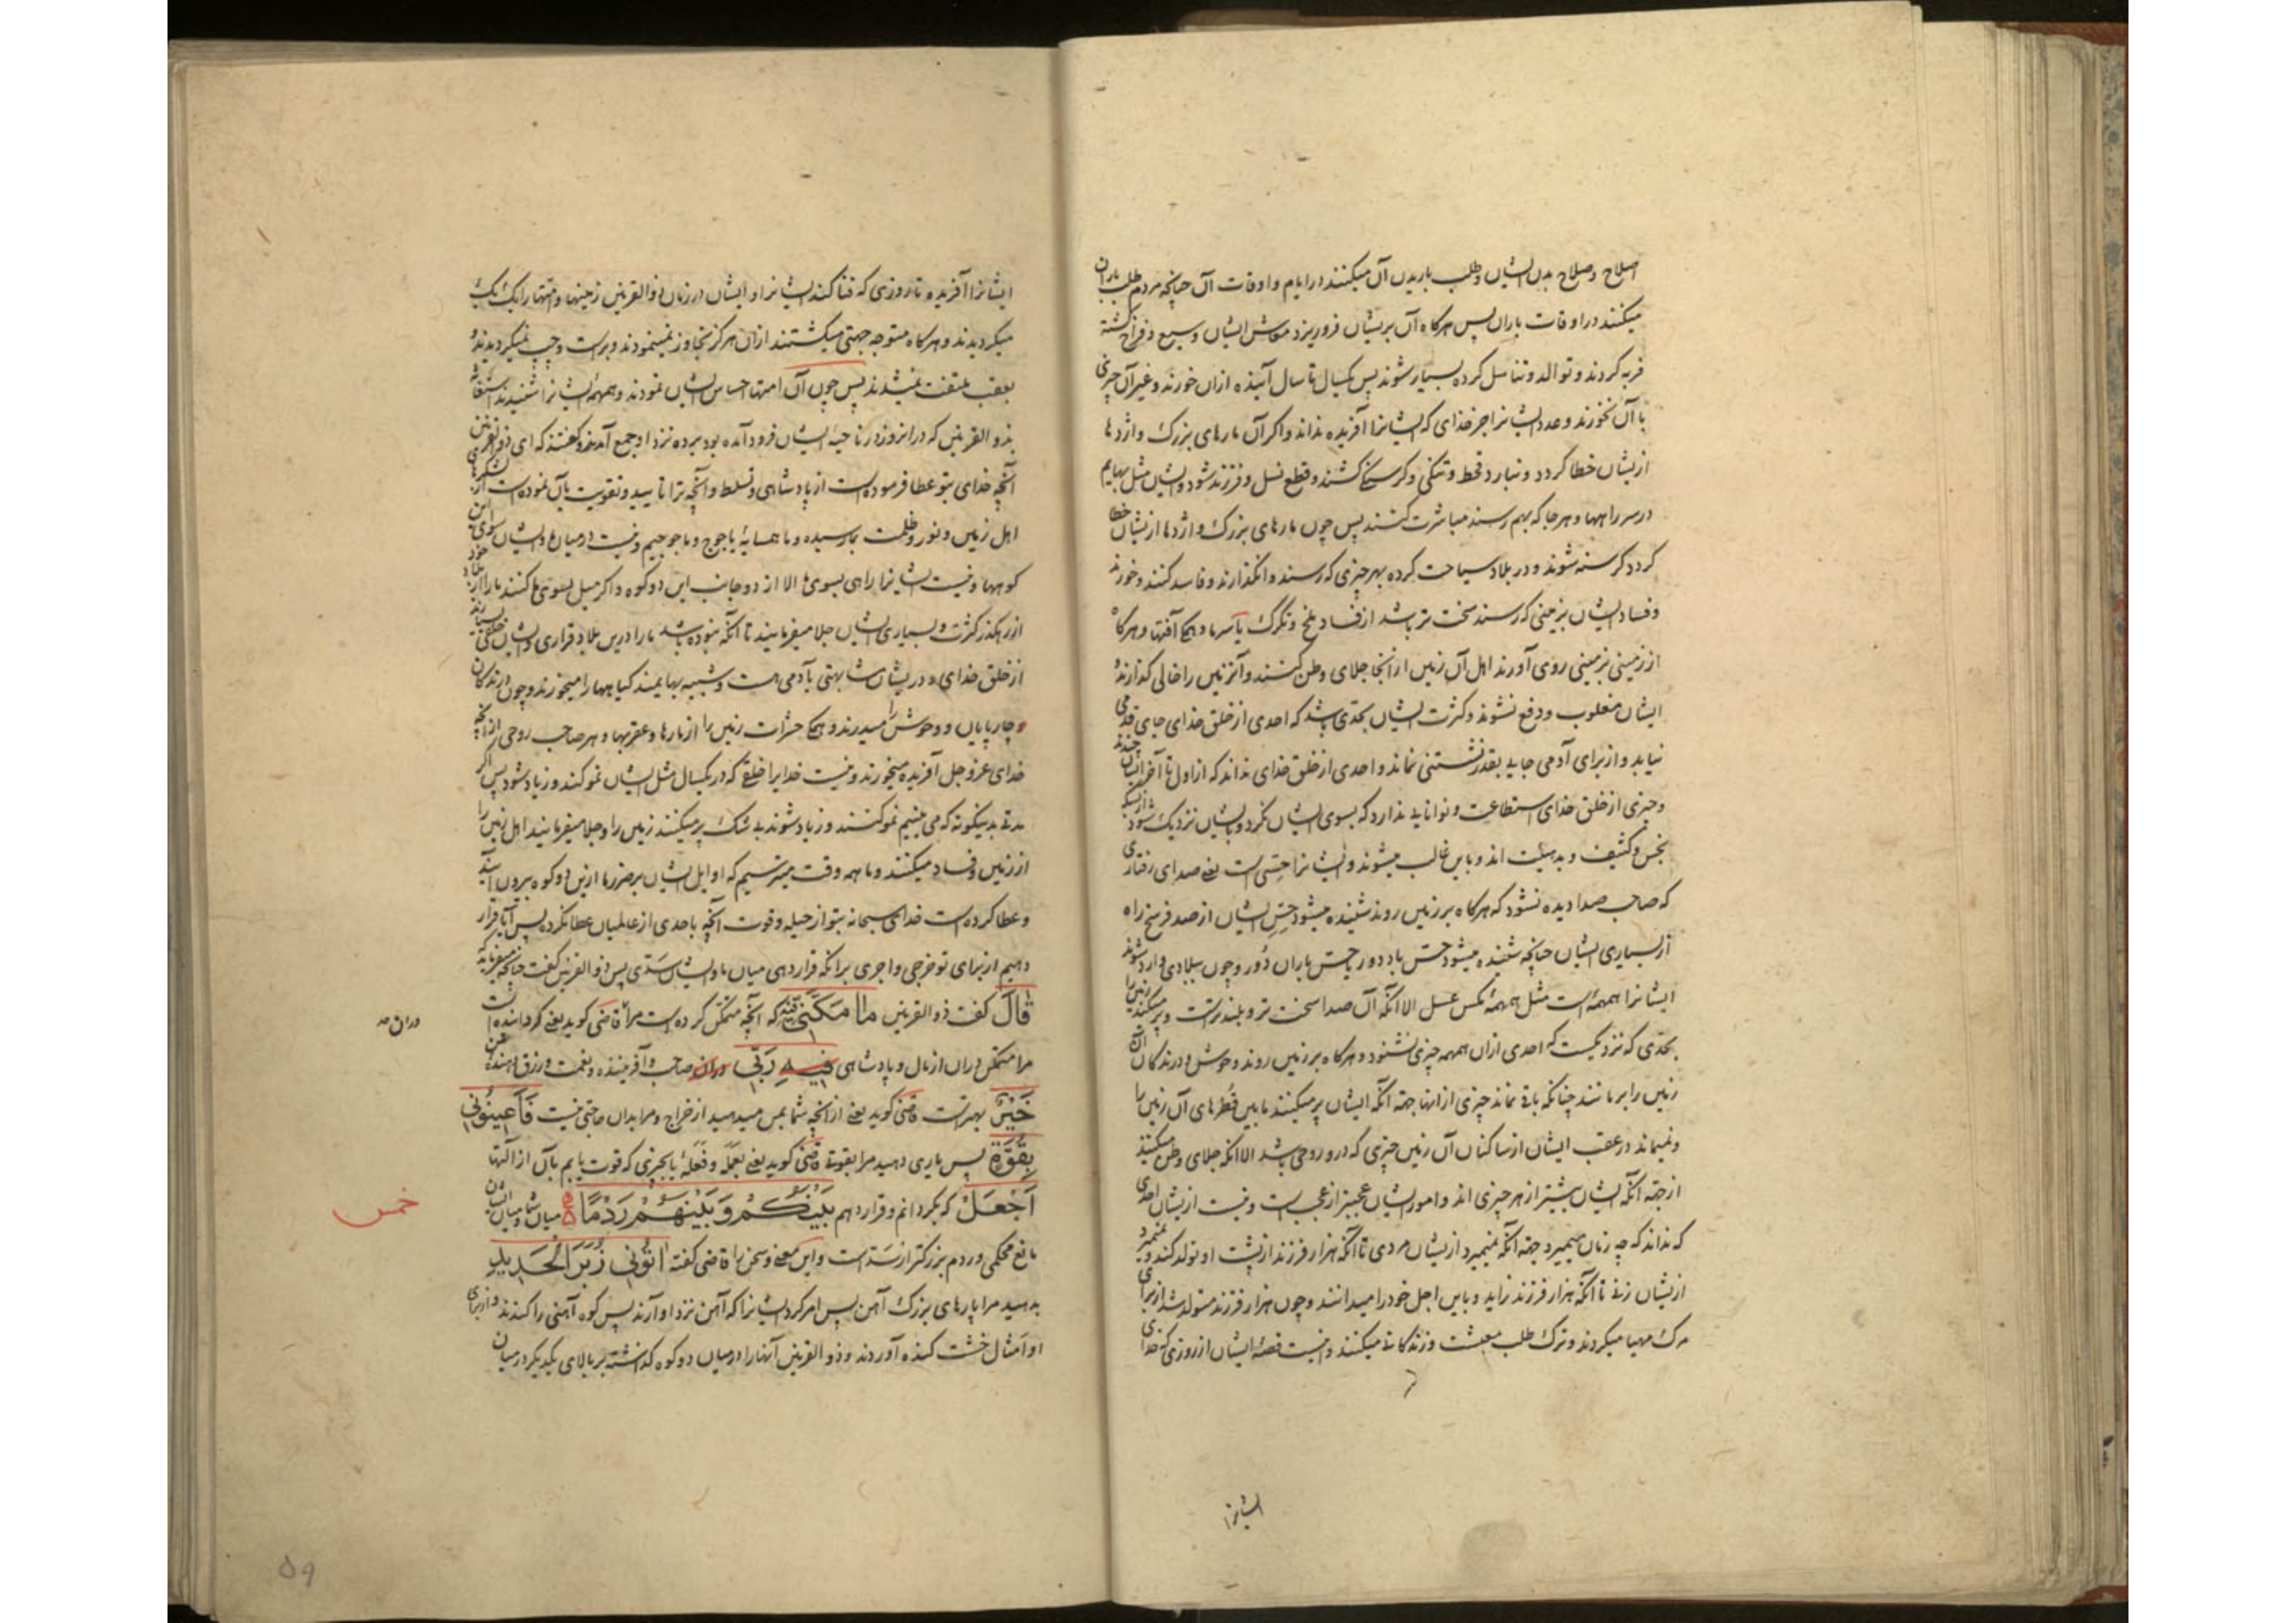 اصلاح و صلاح بدن ایشان و طلب باریدن آن میکنند در ایام و اوقات آن چنانچه مردم طلب باران
میکنند در اوقات باران پس هرگاه آن بریشان فروریزد معاش ایشان وسیع و فراخ گشته
فربه کردند و توالد و تناسل کرده بسیار شوند پس یکسال تا سال آینده ازان خورند و غیر آن چیزی
با آن نخورند و عدد ایشانرا جز خدای که ایشانرا آفریده نداند و اکر آن مارهای بزرک و اژدها
ازیشان خطا کردد و نبارد قحط و تنکی و کرسنکی کشند و قطع نسل و فرزند شود و ایشان مثل بهایم
در سر راهها و هر جا که بهم رسند مباشرت کنند پس چون مارهای بزرک و اژدها ازیشان خطا
کردد کرسنه شوند و در بلاد سیاحت کرده بهر چیزی که رسند وانکذارند و فاسد کنند و خورند
و فساد ایشان بزمینی که رسند سخت تر باشد از فساد ملخ و تکرک یا سرما و همکی آفتها و هرکاه
از زمینی بزمینی روی آورند اهل آن زمین از انجا جلای وطن کنند و آنزمین را خالی کذارند
ایشان مغلوب و دفع نشوند و کثرت ایشان بحدی باشد که احدی از خلق خدای جای قدمی
نیابد و از برای آدمی جایی بقدر نشستنی نماند و احدی از خلق خدای نداند که از اول تا آخر ایشان چندند
و چیزی از خلق خدای استطاعت و توانایی ندارد که بسوی ایشان نکرد و بایشان نزدیک شود ازبسکه
نجس و کثیف و بدهیئت اند و باین غالب میشوند و ایشانرا حسی است یعنی صدای رفتاری
که صاحب صدا دیده نشود که هرکاه بر زمین روند شنیده میشود حس ایشان از صد فرسخ راه
از بسیاری ایشان چنانچه شنیده میشود حس باد دور یا حس باران دور و چون ببلادی وارد شوند
ایشانرا همهمه است مثل همهمه مکس عسل الا آنکه آن صدا سخت تر و بلندترست و پر میکند زمین را
بحدی که نزدیکست که احدی ازان همهمه چیزی نشنود و هرکاه بر زمین روند وحوش و درندکان آن
زمین را برمانند چنانکه باقی نماند چیزی از انها جهة آنکه ایشان پر میکنند مابین قطرهای آن زمین را
و نمیماند در عقب ایشان از ساکنان آن زمین چیزی که درو روحی باشد الا آنکه جلای وطن میکند
از جهة آنکه ایشان بیشتر از هر چیزی اند و امور ایشان عجیبتر از عجب است و نیست ازیشان احدی
که نداند که چه زمان میمیرد جهة آنکه نمیمیرد ازیشان مردی تا آنکه هزار فرزند از پشت او تولد کند و نمیمیرد
ازیشان زنی تا آنکه هزار فرزند زاید و باین اجل خود را میدانند و چون هزار فرزند متولد شد از برای
مرک مهیا میکردند و ترک طلب معیشت و زندکانی میکنند و اینست قصه ایشان از روزی که خدا
ایشانرا
ایشانرا آفریده تا روزی که فنا کند ایشانرا و ایشان در زمان ذوالقرنین زمینها و امتها را یک یک
میکردیدند و هرکاه متوجه جهتی میکشتند ازان هرکز تجاوز نمینمودند و براست و چپ نمیکردیدند و
بعقب ملتفت نمیشدند پس چون آن امتها احساس ایشان نمودند و همهمه ایشانرا شنیدند استغاثه
بذو القرنین که در انروز در ناحیه ایشان فرود آمده بود برده نزد او جمع آمدند و کفتند که ای ذوالقرنین
آنچه خدای بتو عطا فرموده است از پادشاهی و تسلط و آنچه ترا تایید و تقویت بآن نموده است از لشکرهای
اهل زمین و نور و ظلمت بما رسیده و ما همسایه یاجوج و ماجوجیم و نیست در میان ما و ایشان سوی این
کوهها و نیست ایشانرا راهی بسوی ما الا از دو جانب این دو کوه و اکر میل بسوی ما کنند ما را از بلاد خود
از رهکذر کثرت و بسیاری ایشان جلا میفرمایند تا آنکه نبوده باشد ما را درین بلاد قراری و ایشان خلقی بسیارند
از خلق خدای و دریشان مشابهتی بآدمی هست و شبیه بهایمند کیاهها را میخورند و چون درندکان
و چارپایان و وحوش را میدرند و همکی حشرات زمین را از مارها و عقربها و هر صاحب روحی از آنچه
خدای عز و جل آفریده میخورند و نیست خدایرا خلقی که در یکسال مثل ایشان نمو کند و زیاد شود پس اکر
مدتی بدینکونه که می بینیم نمو کنند و زیاد شوند بی شک پر میکنند زمین را و جلا میفرمایند اهل زمین را
از زمین و فساد میکنند و ما همه وقت میترسیم که اوایل ایشان بر ضرر ما ازین دو کوه بیرون آیند
و عطا کرده است خدای سبحانه بتو از حیله و قوت آنچه باحدی از عالمیان عطا نکرده پس آیا قرار
دهیم از برای تو خرجی و اجری برانکه قرار دهی میان ما و ایشان سدی پس ذوالقرنین کفت چنانچه میفرماید که
قَالَ کفت ذوالقرنین مَا مَكَّنِّي فِيهِ که آنچه متمکن کرده است مرا قاضی کوید یعنی کردانیده است
مرا متمکن دران از مال و پادشاهی فِيهِ رَبِّي دران صاحب و آفریننده و نعمت و رزق دهنده من
خَيْرٌ بهترست قاضی کوید یعنی از آنچه شما بمن میدهید از خراج و مرا بدان حاجتی نیست فَأَعِينُونِي
بِقُوَّةٍ پس یاری دهید مرا بقوتی قاضی کوید یعنی بعمله و فعله یا بچیزی که قوت یابم بآن از آلتها
أَجْعَلْ که بکردانم و قرار دهم بَيْنَكُمْ وَبَيْنَهُمْ رَدْمًا میان شما و میان ایشان
مانع محکمی و ردم بزرکتر از سدست و این معنی و سخن را قاضی کفته اٰتُونِي زُبَرَ الْحَدِيدِ
بدهید مرا پارهای بزرک آهن پس امر کرد ایشانرا که آهن نزد او آرند پس کوه آهنی را کندند و از برای
او امثال خشت کنده آوردند و ذو القرنین آنها را در میان دو کوه کذاشته بر بالای یکدیکر در میان
دران صه
خمس
۵۹